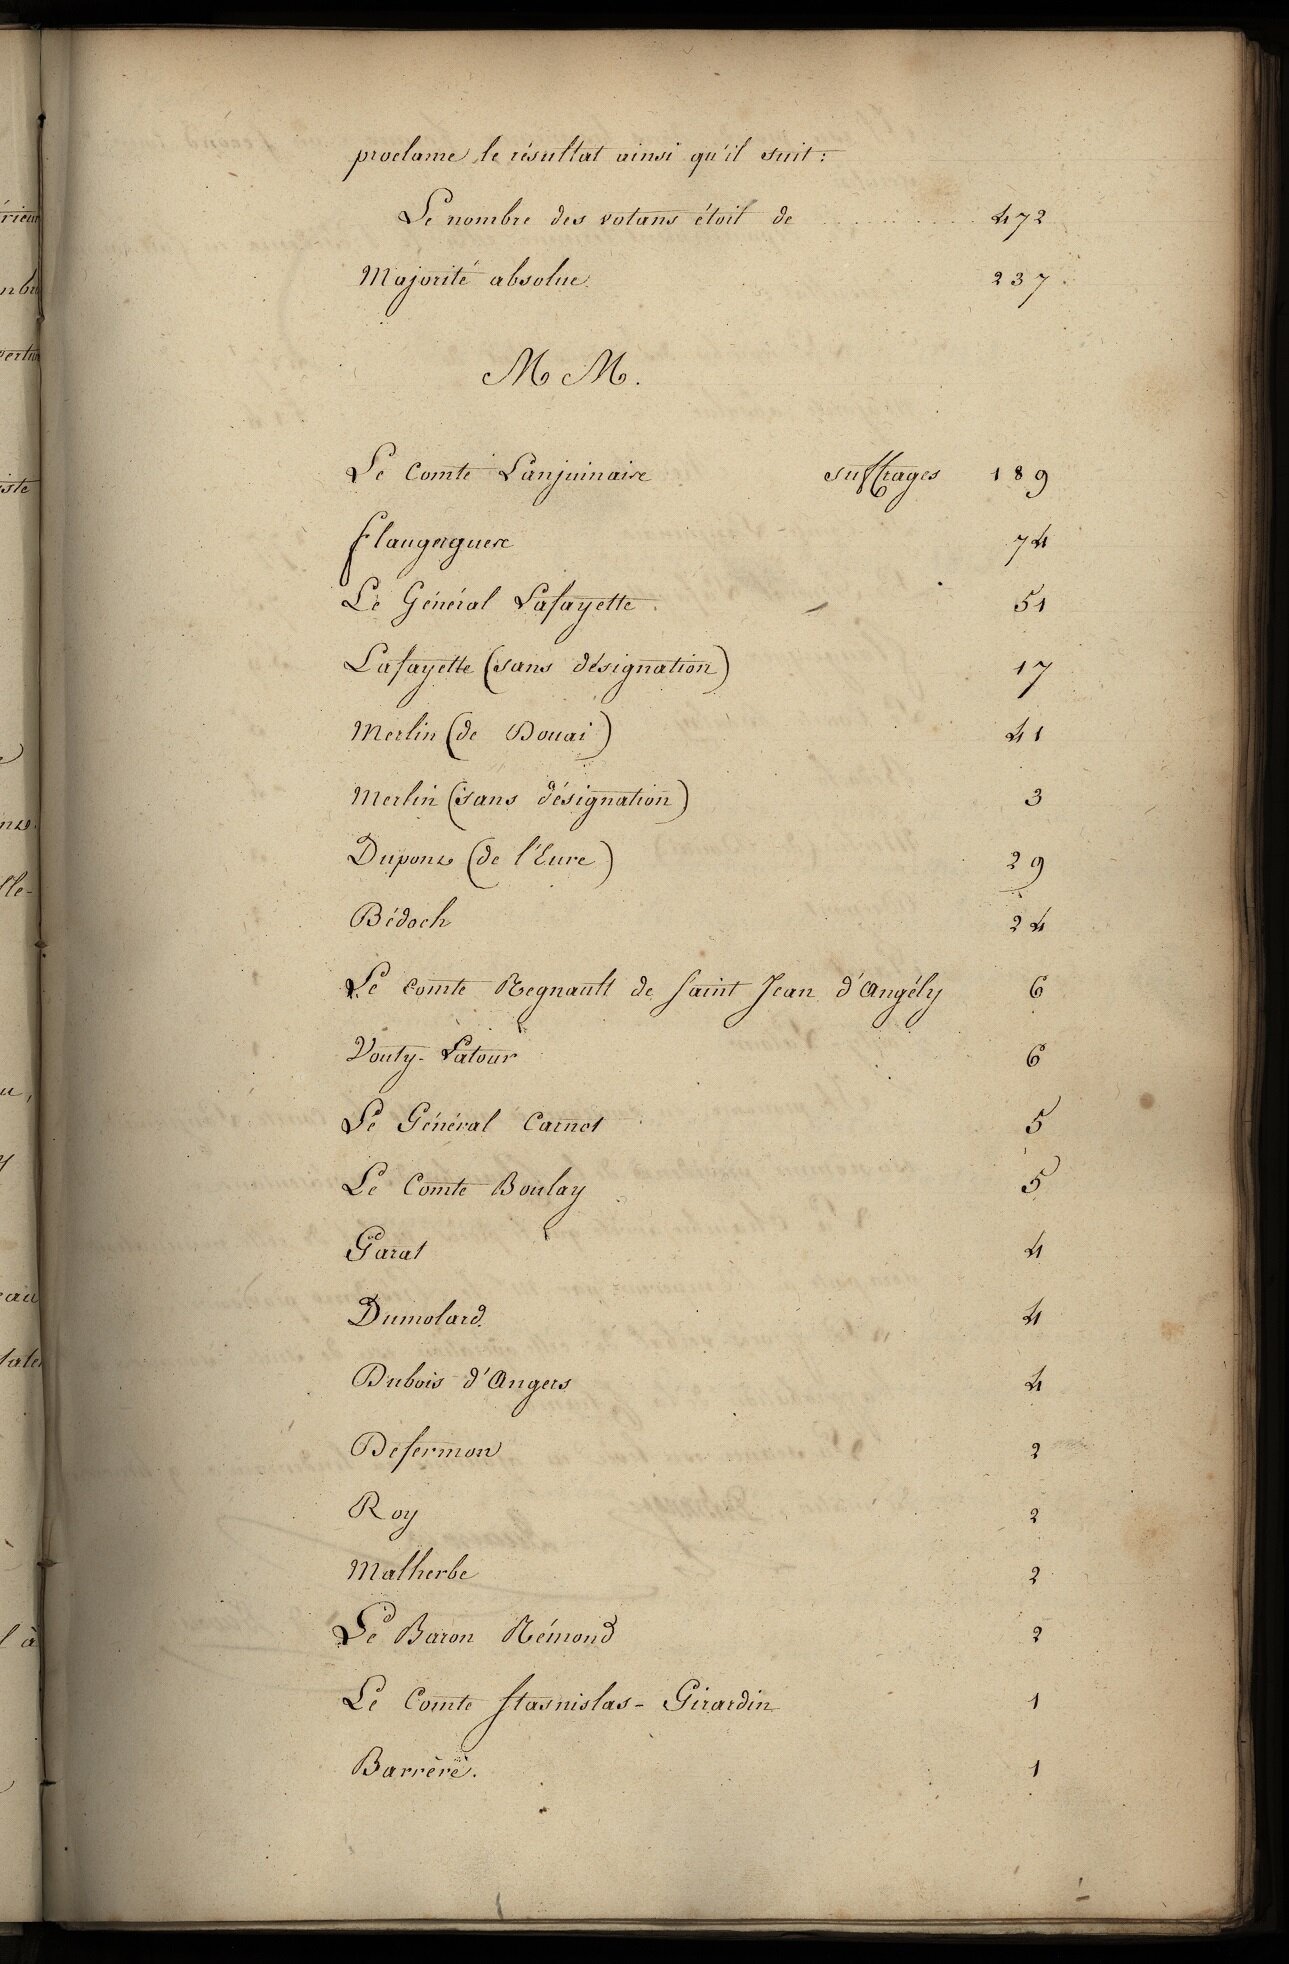 proclame le résultat ainsi qu'il suit:
Le nombre des votans étoit de 472
Majorité absolue 237
M M.
Le Comte Lanjuinais suffrages 189
flaugergues 74
Le Général Lafayette. 51
Lafayette (sans désignation) 17
Merlin (de Douai) 41
Merlin (sans désignation) 3
Dupont (de l'Eure) 29
Bédoch 24
Le comte Regnault de Saint Jean d'Angély 6
Vouty-Latour 6
Le Général Carnot 5
Le Comte Boulay 5
Garat 4
Dumolard. 4
Dubois d'Angers 4
Defermon 2
Roy 2
Malherbe 2
Le Baron Rémond 2
Le Comte Stasnislas-Girardin 1
Barrère. 1